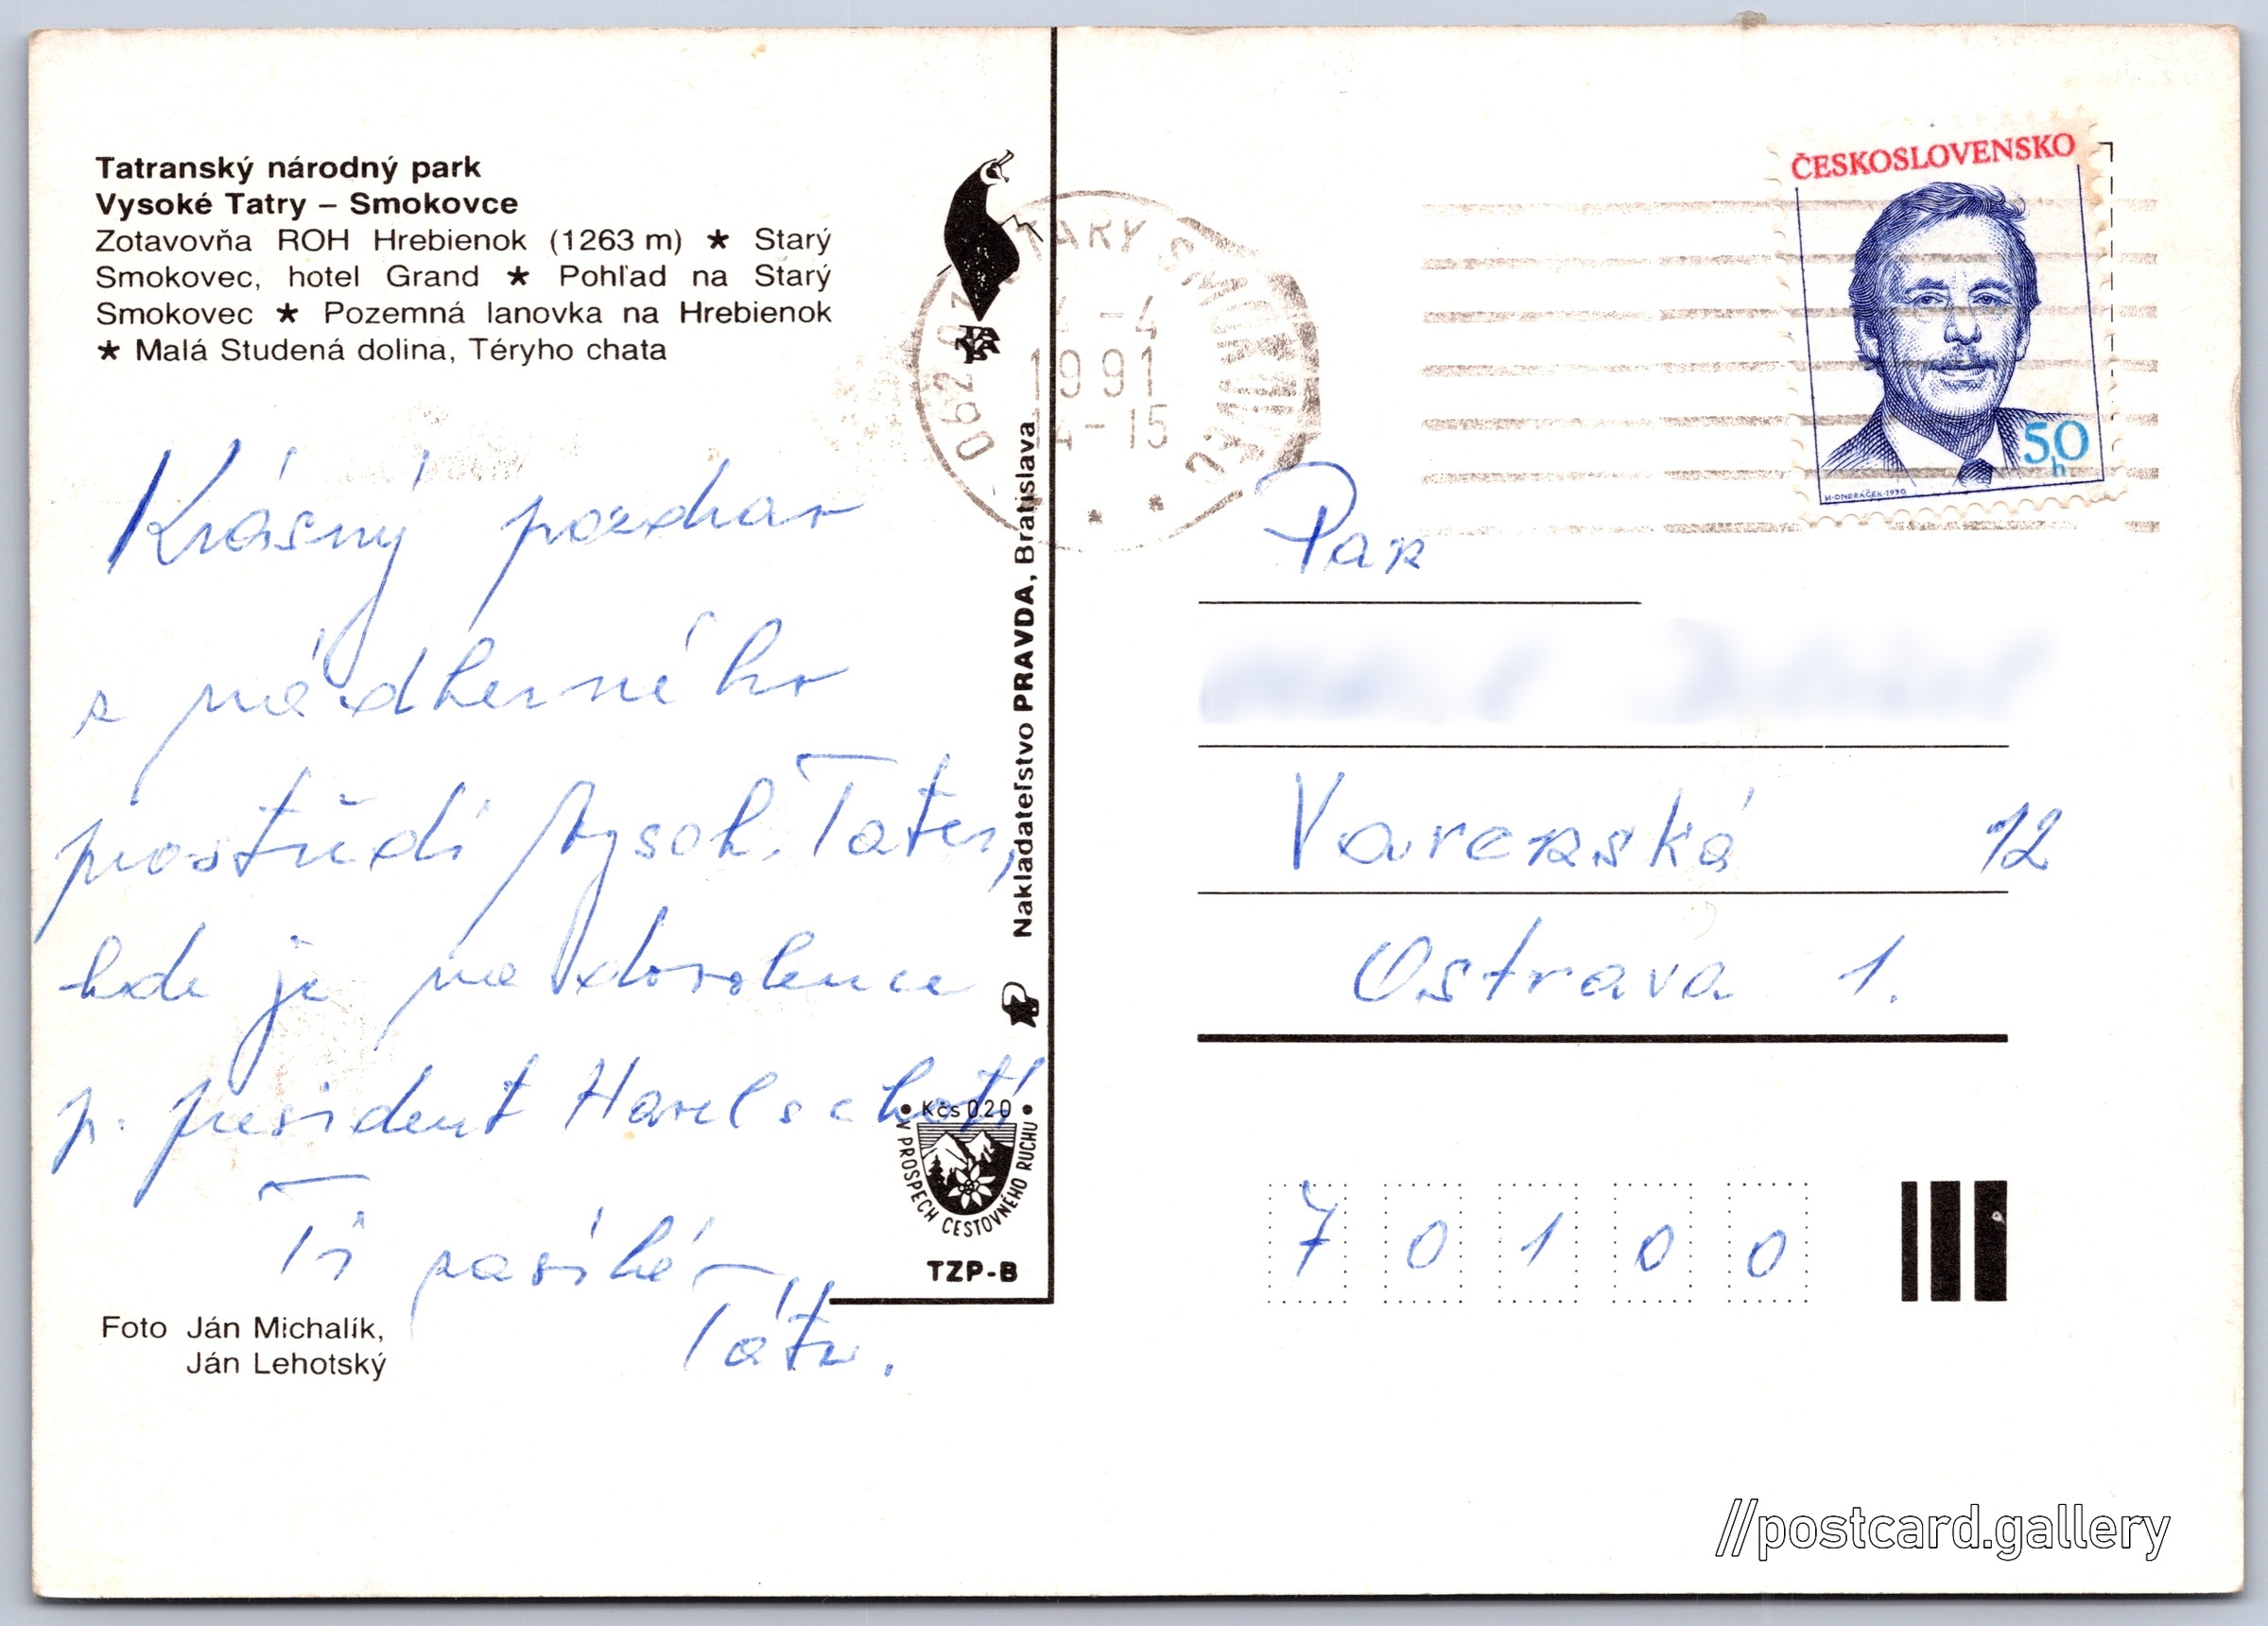 Tatranský národný park
Vysoké Tatry – Smokovce
Zotavovňa ROH Hrebienok (1263 m) ★ Starý
Smokovec, hotel Grand ★ Pohľad na Starý
Smokovec ★ Pozemná lanovka na Hrebienok
★ Malá Studená dolina, Téryho chata
Krásný pozdrav
z nádherného
prostředí Vysok. Tater,
kde je na dovolence
p. president Havel s chotí
Ti posílá
Táta.
Foto Ján Michalík,
Ján Lehotský
Nakladateľstvo PRAVDA, Bratislava
Kčs 0.20
V PROSPECH CESTOVNÉHO RUCHU
TZP-B
062 01 STARÝ SMOKOVEC
-4
1991
4-15
ČESKOSLOVENSKO
50
h
M·ONDRÁČEK·1990
Pan
Varenská 12
Ostrava 1.
7 0 1 0 0
//postcard.gallery